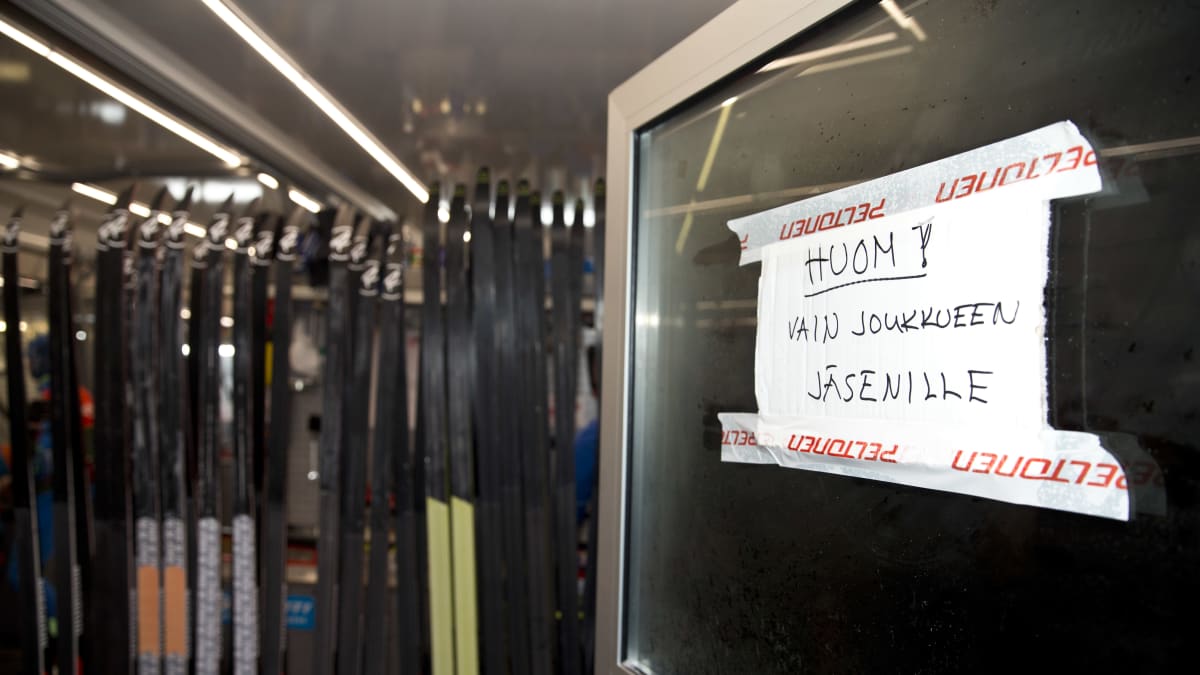 PELTONEN PELTONEN
HUOM!
VAIN JOUKKUEEN
JÄSENILLE
PELTONEN PELTONEN PELTONEN